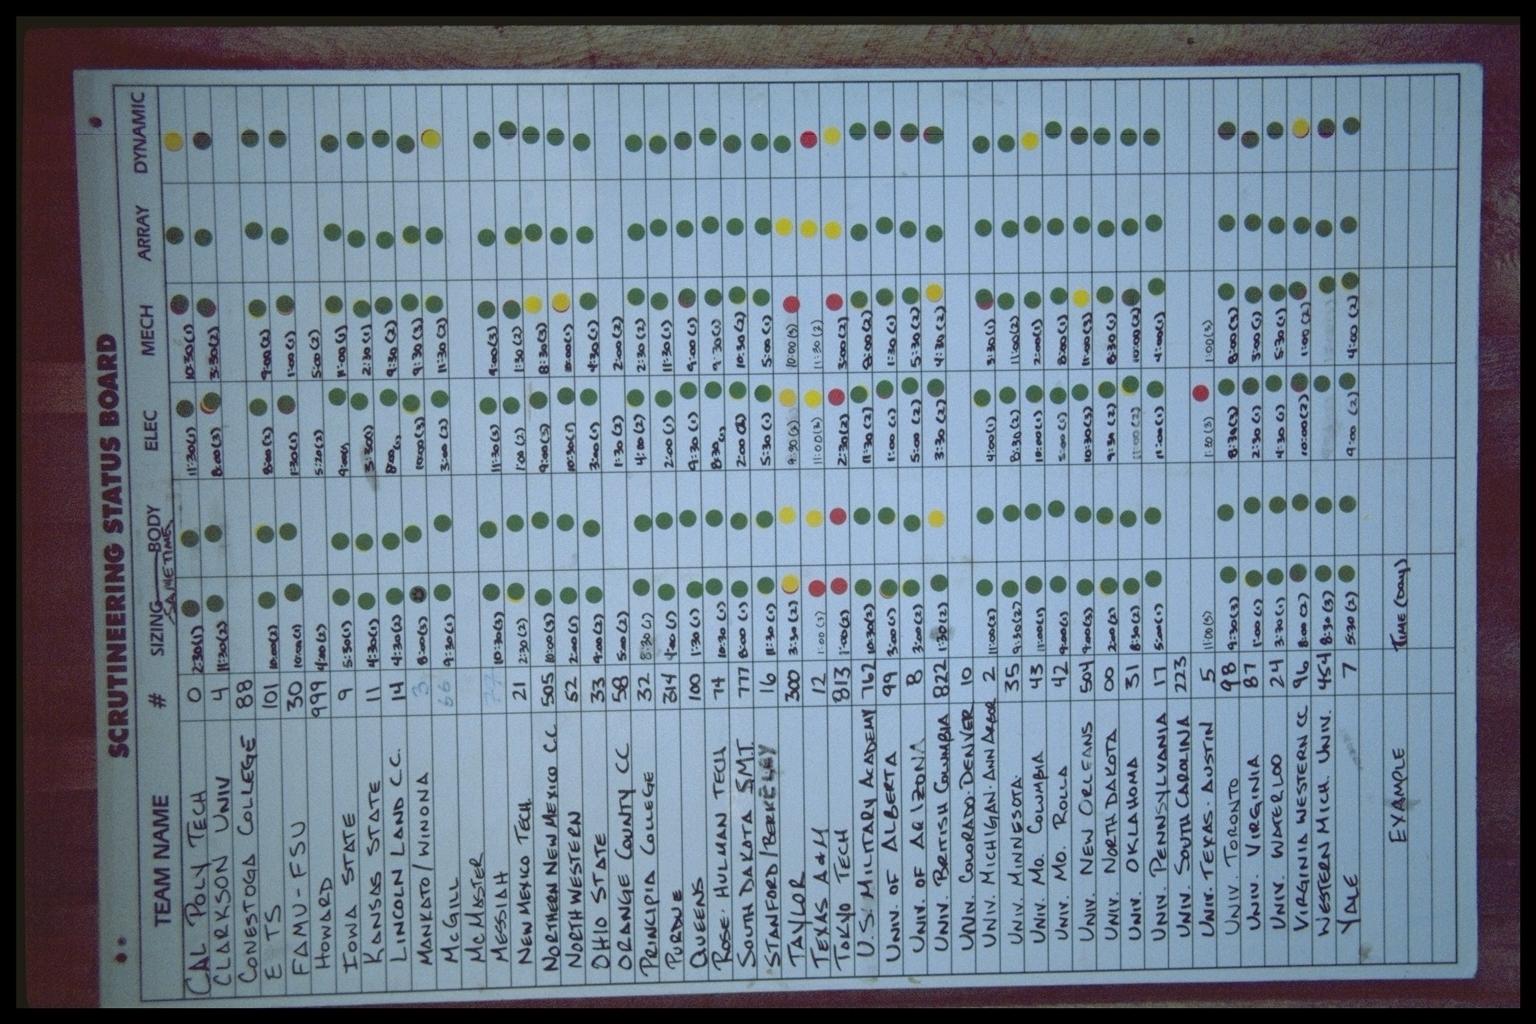 SCRUTINEERING STATUS BOARD
TEAM NAME # SIZING BODY ELEC MECH ARRAY DYNAMIC
SAMETIME
CAL POLY TECH 0 2:30(1) 11:30(1) 10:30(1)
CLARKSON UNIV 4 11:30(2) 8:00(3) 3:30(2)
CONESTOGA COLLEGE 88
ETS 101 10:00(2) 8:00(2) 9:00(2)
FAMU-FSU 30 10:00(1) 1:30(1) 1:00(1)
HOWARD 999 4:20(2) 5:20(2) 5:00(2)
IOWA STATE 9 5:30(1) 11:00(1)
KANSAS STATE 11 4:30(1) 2:30(1)
LINCOLN LAND C.C. 14 4:30(2) 9:30(2)
MANKATO/WINONA 3 8:00(3) 10:00(3) 9:30(3)
MCGILL 66 9:30(1) 3:00(2) 11:30(2)
MCMASTER
MESSIAH 77 10:30(3) 11:30(3) 9:00(3)
NEW MEXICO TECH. 21 2:30(2) 1:00(2) 1:30(2)
NORTHERN NEW MEXICO CC 505 10:00(3) 9:00(3) 8:30(3)
NORTHWESTERN 52 2:00(1) 10:30(1) 10:00(1)
OHIO STATE 33 9:00(2) 3:00(1) 4:30(1)
ORANGE COUNTY CC 58 5:00(2) 1:30(2) 2:00(2)
PRINCIPIA COLLEGE 32 8:30(1) 4:00(2) 2:30(2)
PURDUE 314 4:00(1) 2:00(1) 11:30(1)
QUEENS 100 1:30(1) 9:30(1) 9:00(1)
ROSE-HULMAN TECH 74 10:30(1) 8:30 9:30(1)
SOUTH DAKOTA S.M.T. 777 8:00(1) 2:00(2) 10:30(2)
STANFORD/BERKELEY 16 11:30(1) 5:30(1) 5:00(1)
TAYLOR 300 3:30(2) 9:30(3) 10:00(3)
TEXAS A&M 12 1:00(2) 11:00(3) 11:30(2)
TOKYO TECH 813 1:00(2) 2:30(2) 3:00(2)
U.S. MILITARY ACADEMY 767 10:30(2) 11:30(2) 8:00(2)
UNIV. OF ALBERTA 99 3:00(1) 1:00(1) 1:30(1)
UNIV. OF ARIZONA 8 3:00(2) 5:00(2) 5:30(2)
UNIV. BRITISH COLUMBIA 822 1:30(2) 3:30(2) 4:30(2)
UNIV. COLORADO-DENVER 10
UNIV. MICHIGAN-ANN ARBOR 2 11:00(2) 4:00(1) 3:30(1)
UNIV. MINNESOTA 35 9:30(2) 8:30(2) 11:00(2)
UNIV. MO. COLUMBIA 43 11:00(1) 10:00(1) 2:00(1)
UNIV. MO. ROLLA 42 9:00(1) 5:00(1) 8:00(1)
UNIV. NEW ORLEANS 504 9:00(3) 10:30(3) 11:00(3)
UNIV. NORTH DAKOTA 00 2:00(2) 9:30(2) 8:30(2)
UNIV. OKLAHOMA 31 8:30(2) 11:00(2) 10:00(2)
UNIV. PENNSYLVANIA 17 5:00(1) 11:00(1) 4:00(1)
UNIV. SOUTH CAROLINA 223
UNIV. TEXAS-AUSTIN 5 11:00(3) 1:30(3) 1:00(3)
UNIV. TORONTO 98 9:30(3) 8:30(3) 8:00(3)
UNIV. VIRGINIA 87 1:00(1) 2:30(1) 3:00(1)
UNIV. WATERLOO 24 3:30(1) 4:30(1) 5:30(1)
VIRGINIA WESTERN CC 96 8:00(2) 10:00(2) 1:00(2)
WESTERN MICH. UNIV. 454 8:30(3)
YALE 7 5:30(2) 9:00(2) 4:00(2)
EXAMPLE TIME(DAY)